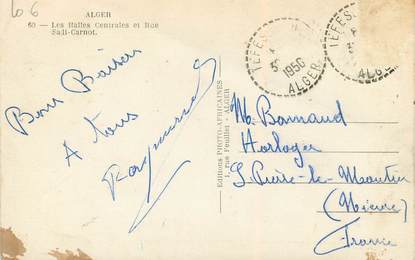 60
ALGER
60 — Les Halles Centrales et Rue
Sadi-Carnot.
Bons Baisers
A tous
Raymond
Editions PHOTO-AFRICAINES
1, rue Feuillet - ALGER
TEFES
1950
ALGER
TEFES
ALGER
M. Bernaud
Horloger
St Pierre-le-Moutier
(Nièvre)
France